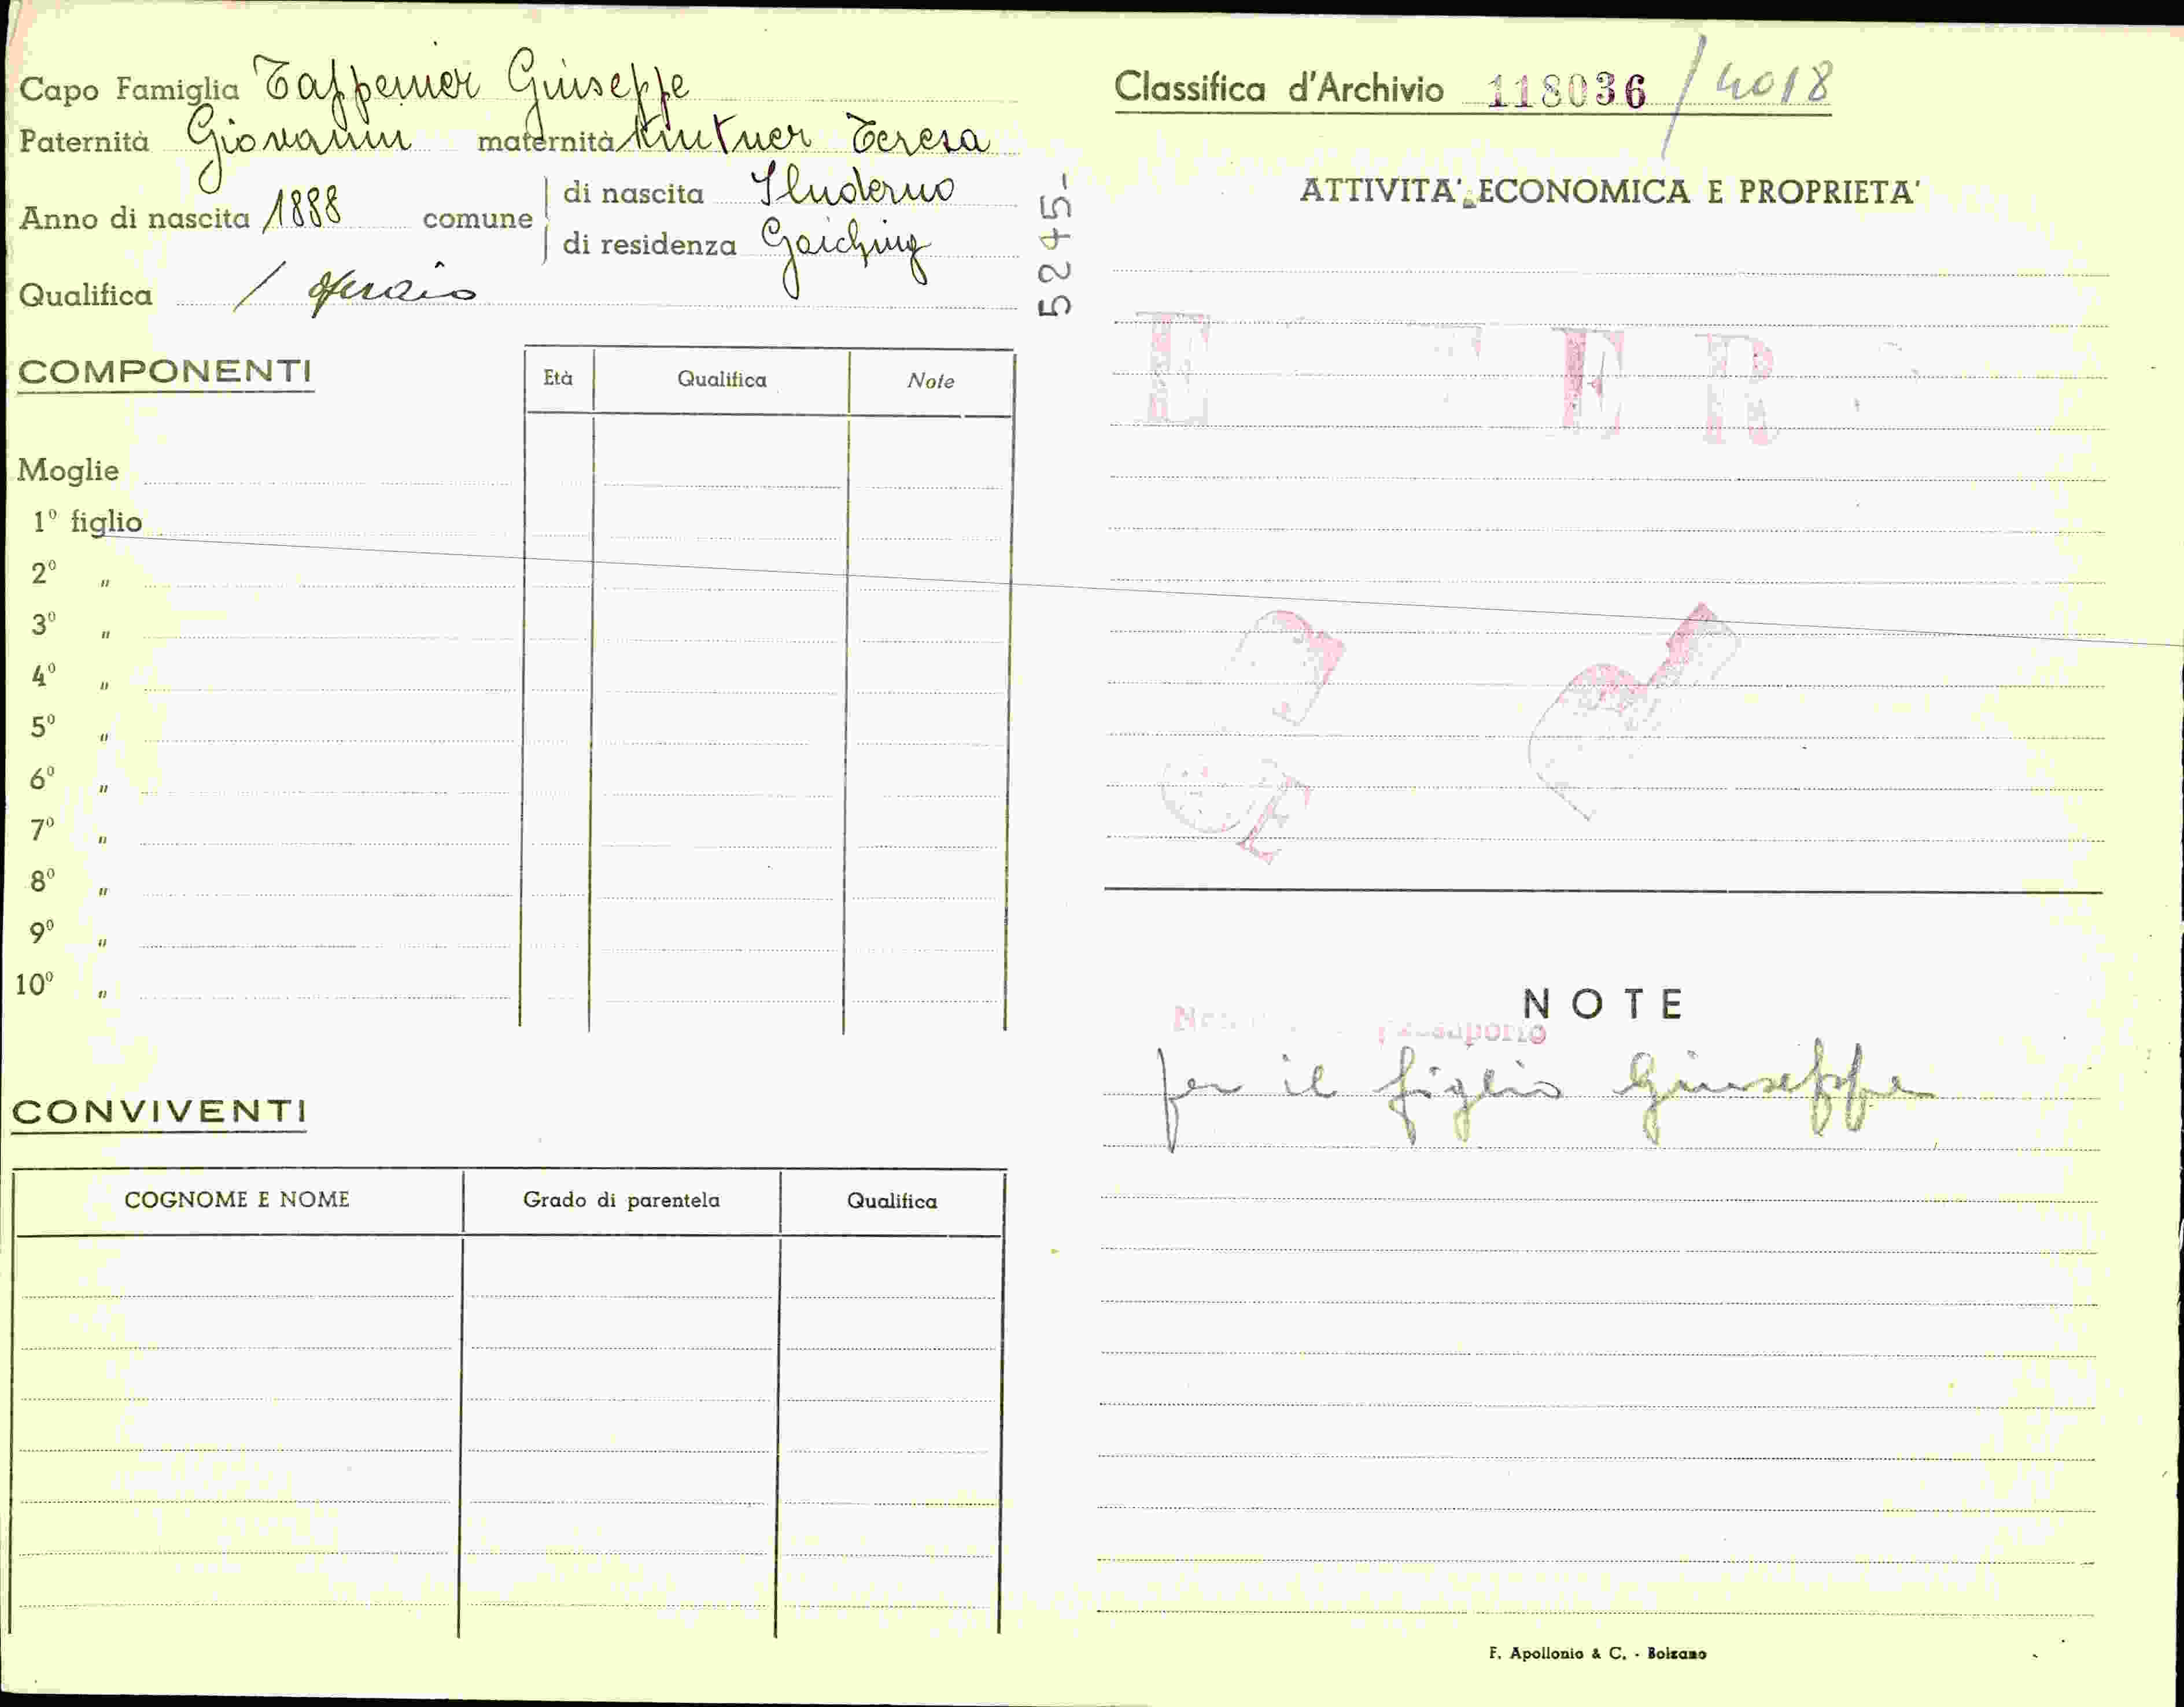 Capo Famiglia Tappeiner Giuseppe
Paternità Giovanni maternità Kuntner Teresa
Anno di nascita 1888 comune
di nascita Sluderno
di residenza Gaiching
Qualifica / operaio
5245-
COMPONENTI
Età Qualifica Note
Moglie
1º figlio
2º "
3º "
4º "
5º "
6º "
7º "
8º "
9º "
10º "
CONVIVENTI
COGNOME E NOME Grado di parentela Qualifica
Classifica d'Archivio 118036 / 4018
ATTIVITA' ECONOMICA E PROPRIETA'
E E R
NOTE
passaporto
per il figlio Giuseppe
F. Apollonio & C. - Bolzano